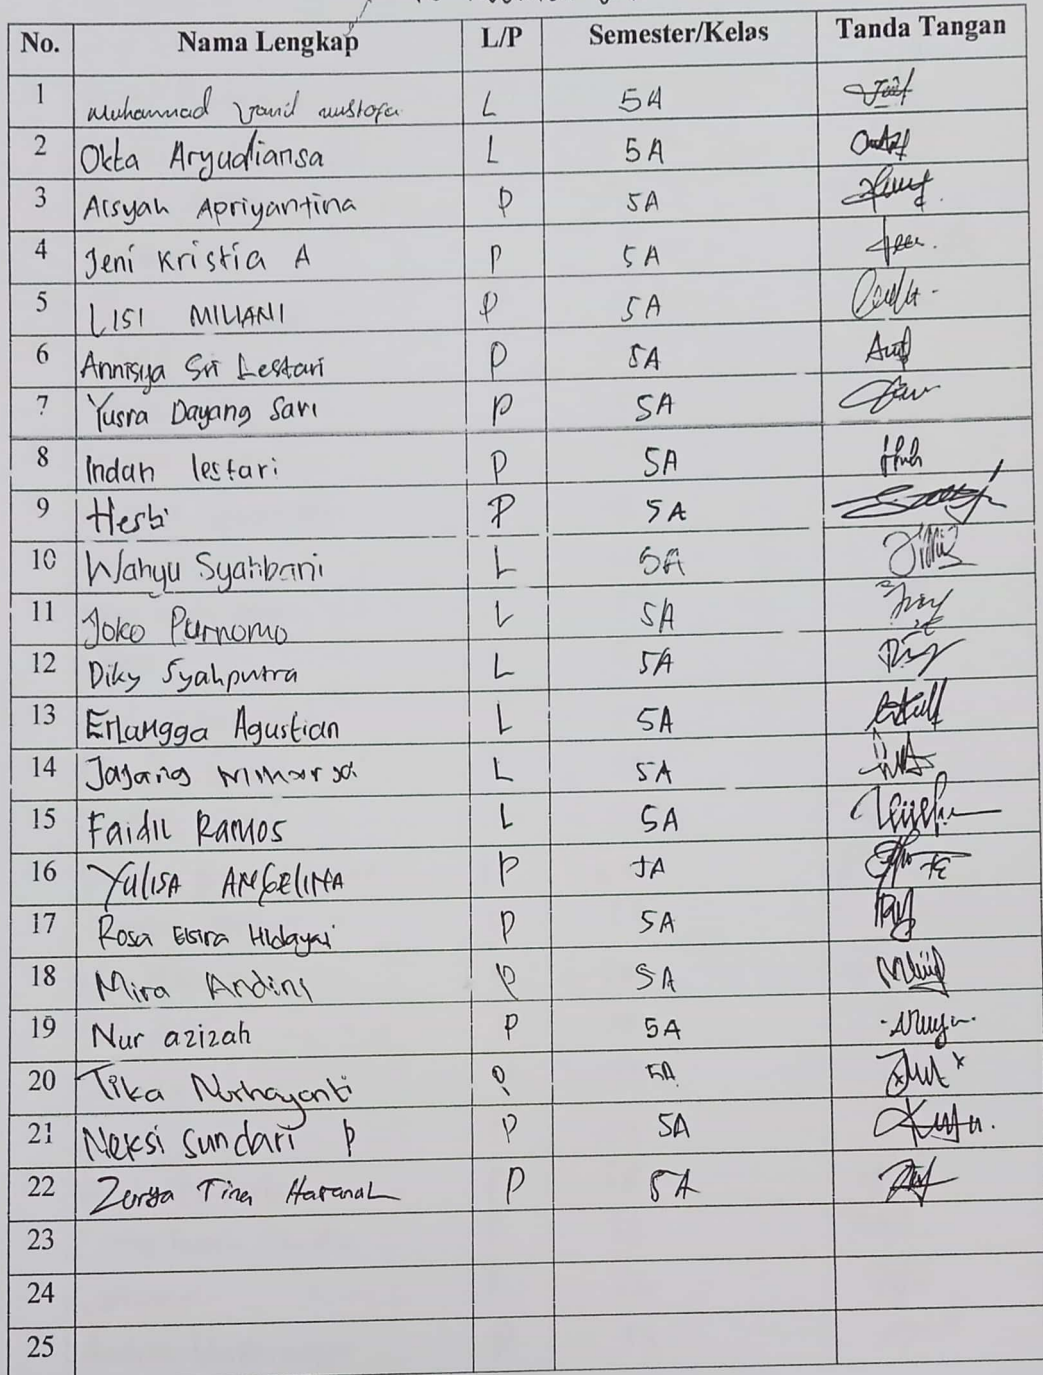 No. Nama Lengkap L/P Semester/Kelas Tanda Tangan
1 Muhammad Jamil mustofa L 5A
2 Okta Aryudiansa L 5A
3 Aisyah Apriyantina P 5A
4 Jeni Kristia A P 5A
5 LISI MILIANI P 5A
6 Annisya Sri Lestari P 5A
7 Yusra Dayang Sari P 5A
8 Indah lestari P 5A
9 Hesti P 5A
10 Wahyu Syahbani L 5A
11 Joko Purnomo L 5A
12 Diky Syahputra L 5A
13 Erlangga Agustian L 5A
14 Jajang L 5A
15 Faidil Ramos L 5A
16 Yulisa ANGELINA P 5A
17 Rosa Elsira Hidayati P 5A
18 Mira Andini P 5A
19 Nur azizah P 5A
20 Tika Nurhayanti P 5A
21 Neksi Sundari P P 5A
22 Tina P 5A
23
24
25